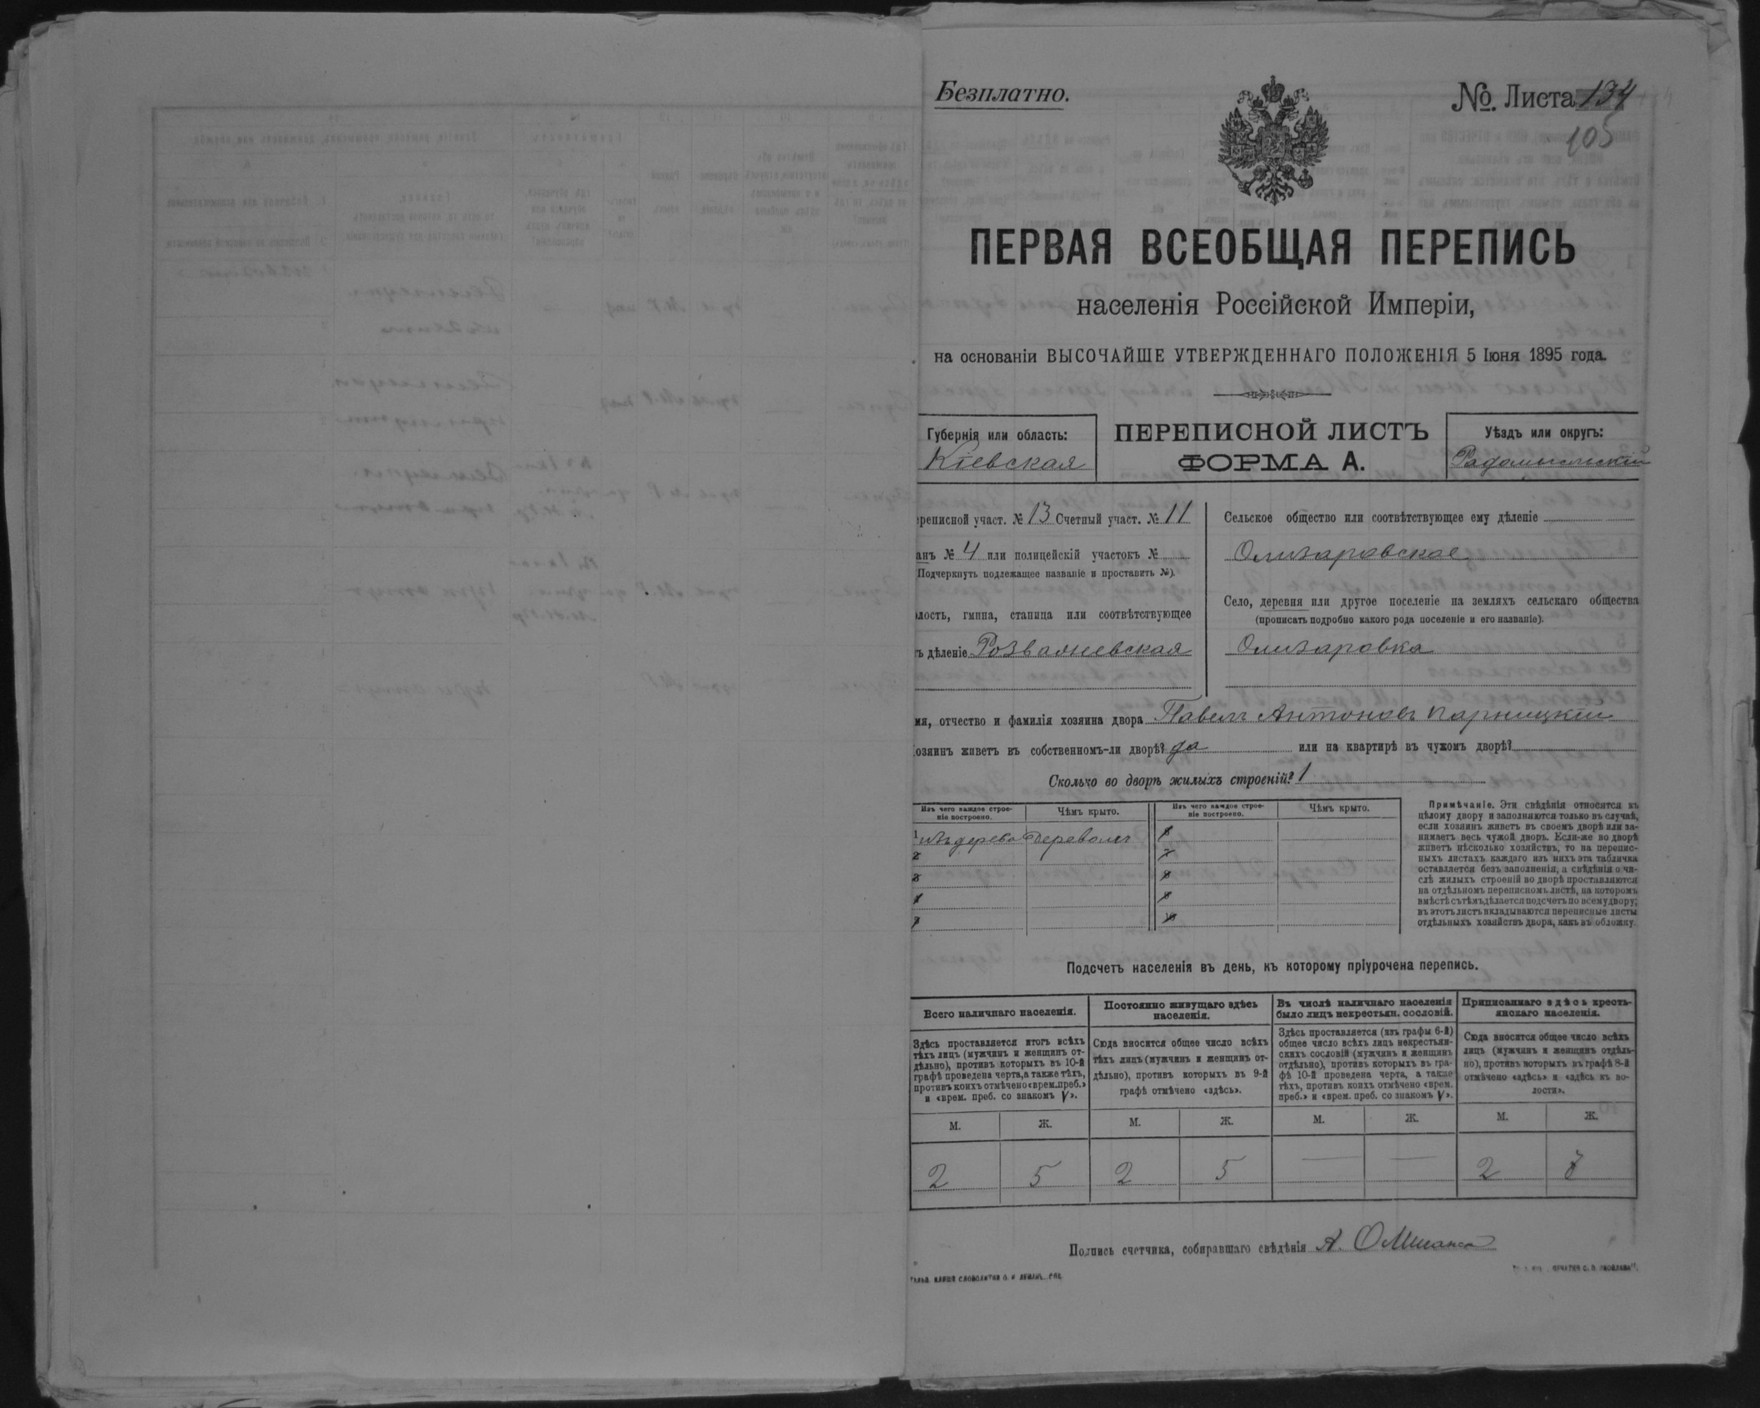 Безплатно.
№. Листа 134
105
ПЕРВАЯ ВСЕОБЩАЯ ПЕРЕПИСЬ
населенія Россійской Имперіи,
на основаніи ВЫСОЧАЙШЕ УТВЕРЖДЕННАГО ПОЛОЖЕНІЯ 5 Іюня 1895 года.
Губернія или область:
Кіевская
ПЕРЕПИСНОЙ ЛИСТЪ
ФОРМА А.
Уѣздъ или округъ:
Радомысльскій
ереписной участ. № 13 Счетный участ. № 11
анъ № 4 или полицейскій участокъ №
(Подчеркнуть подлежащее названіе и проставить №).
лость, гмина, станица или соотвѣтствующее
ъ дѣленіе Розважевская
Сельское общество или соотвѣтствующее ему дѣленіе
Олизаровское
Село, деревня или другое поселеніе на земляхъ сельскаго общества
(прописать подробно какого рода поселеніе и его названіе).
Олизаровка
мя, отчество и фамилія хозяина двора Павелъ Антоновъ Парницкій
озяинъ живетъ въ собственномъ-ли дворѣ? да или на квартирѣ въ чужомъ дворѣ?
Сколько во дворѣ жилыхъ строеній? 1
Изъ чего каждое строе-
ніе построено.
Чѣмъ крыто.
Изъ чего каждое строе-
ніе построено.
Чѣмъ крыто.
1 изъ дерева Деревомъ
2
3
4
5
6
7
8
9
10
Примѣчаніе. Эти свѣдѣнія относятся къ
цѣлому двору и заполняются только въ случаѣ,
если хозяинъ живетъ въ своемъ дворѣ или за-
нимаетъ весь чужой дворъ. Если-же во дворѣ
живетъ нѣсколько хозяйствъ, то на перепис-
ныхъ листахъ каждаго изъ нихъ эта табличка
оставляется безъ заполненія, а свѣдѣнія о чи-
слѣ жилыхъ строеній во дворѣ проставляются
на отдѣльномъ переписномъ листѣ, на которомъ
вмѣстѣ съ тѣмъ дѣлается подсчетъ по всему двору;
въ этотъ листъ вкладываются переписные листы
отдѣльныхъ хозяйствъ двора, какъ въ обложку.
Подсчетъ населенія въ день, къ которому пріурочена перепись.
Всего наличнаго населенія.
Здѣсь проставляется итогъ всѣхъ
тѣхъ лицъ (мужчинъ и женщинъ от-
дѣльно), противъ которыхъ въ 10-й
графѣ проведена черта, а также тѣхъ,
противъ коихъ отмѣчено «врем. преб.»
и «врем. преб. со знакомъ V».
Постоянно живущаго здѣсь
населенія.
Сюда вносится общее число всѣхъ
тѣхъ лицъ (мужчинъ и женщинъ от-
дѣльно), противъ которыхъ въ 9-й
графѣ отмѣчено «здѣсь».
Въ числѣ наличнаго населенія
было лицъ некрестьян. сословій.
Здѣсь проставляется (изъ графы 6-й)
общее число всѣхъ лицъ некрестьян-
скихъ сословій (мужчинъ и женщинъ
отдѣльно), противъ которыхъ въ гра-
фѣ 10-й проведена черта, а также
тѣхъ, противъ коихъ отмѣчено «врем.
преб.» и «врем. преб. со знакомъ V».
Приписаннаго здѣсь кресть-
янскаго населенія.
Сюда вносится общее число всѣхъ
лицъ (мужчинъ и женщинъ отдѣль-
но), противъ которыхъ въ графѣ 8-й
отмѣчено «здѣсь» и «здѣсь въ во-
лости».
М. Ж. М. Ж. М. Ж. М. Ж.
2 5 2 5 — — 2
Подпись счетчика, собиравшаго свѣдѣнія А.